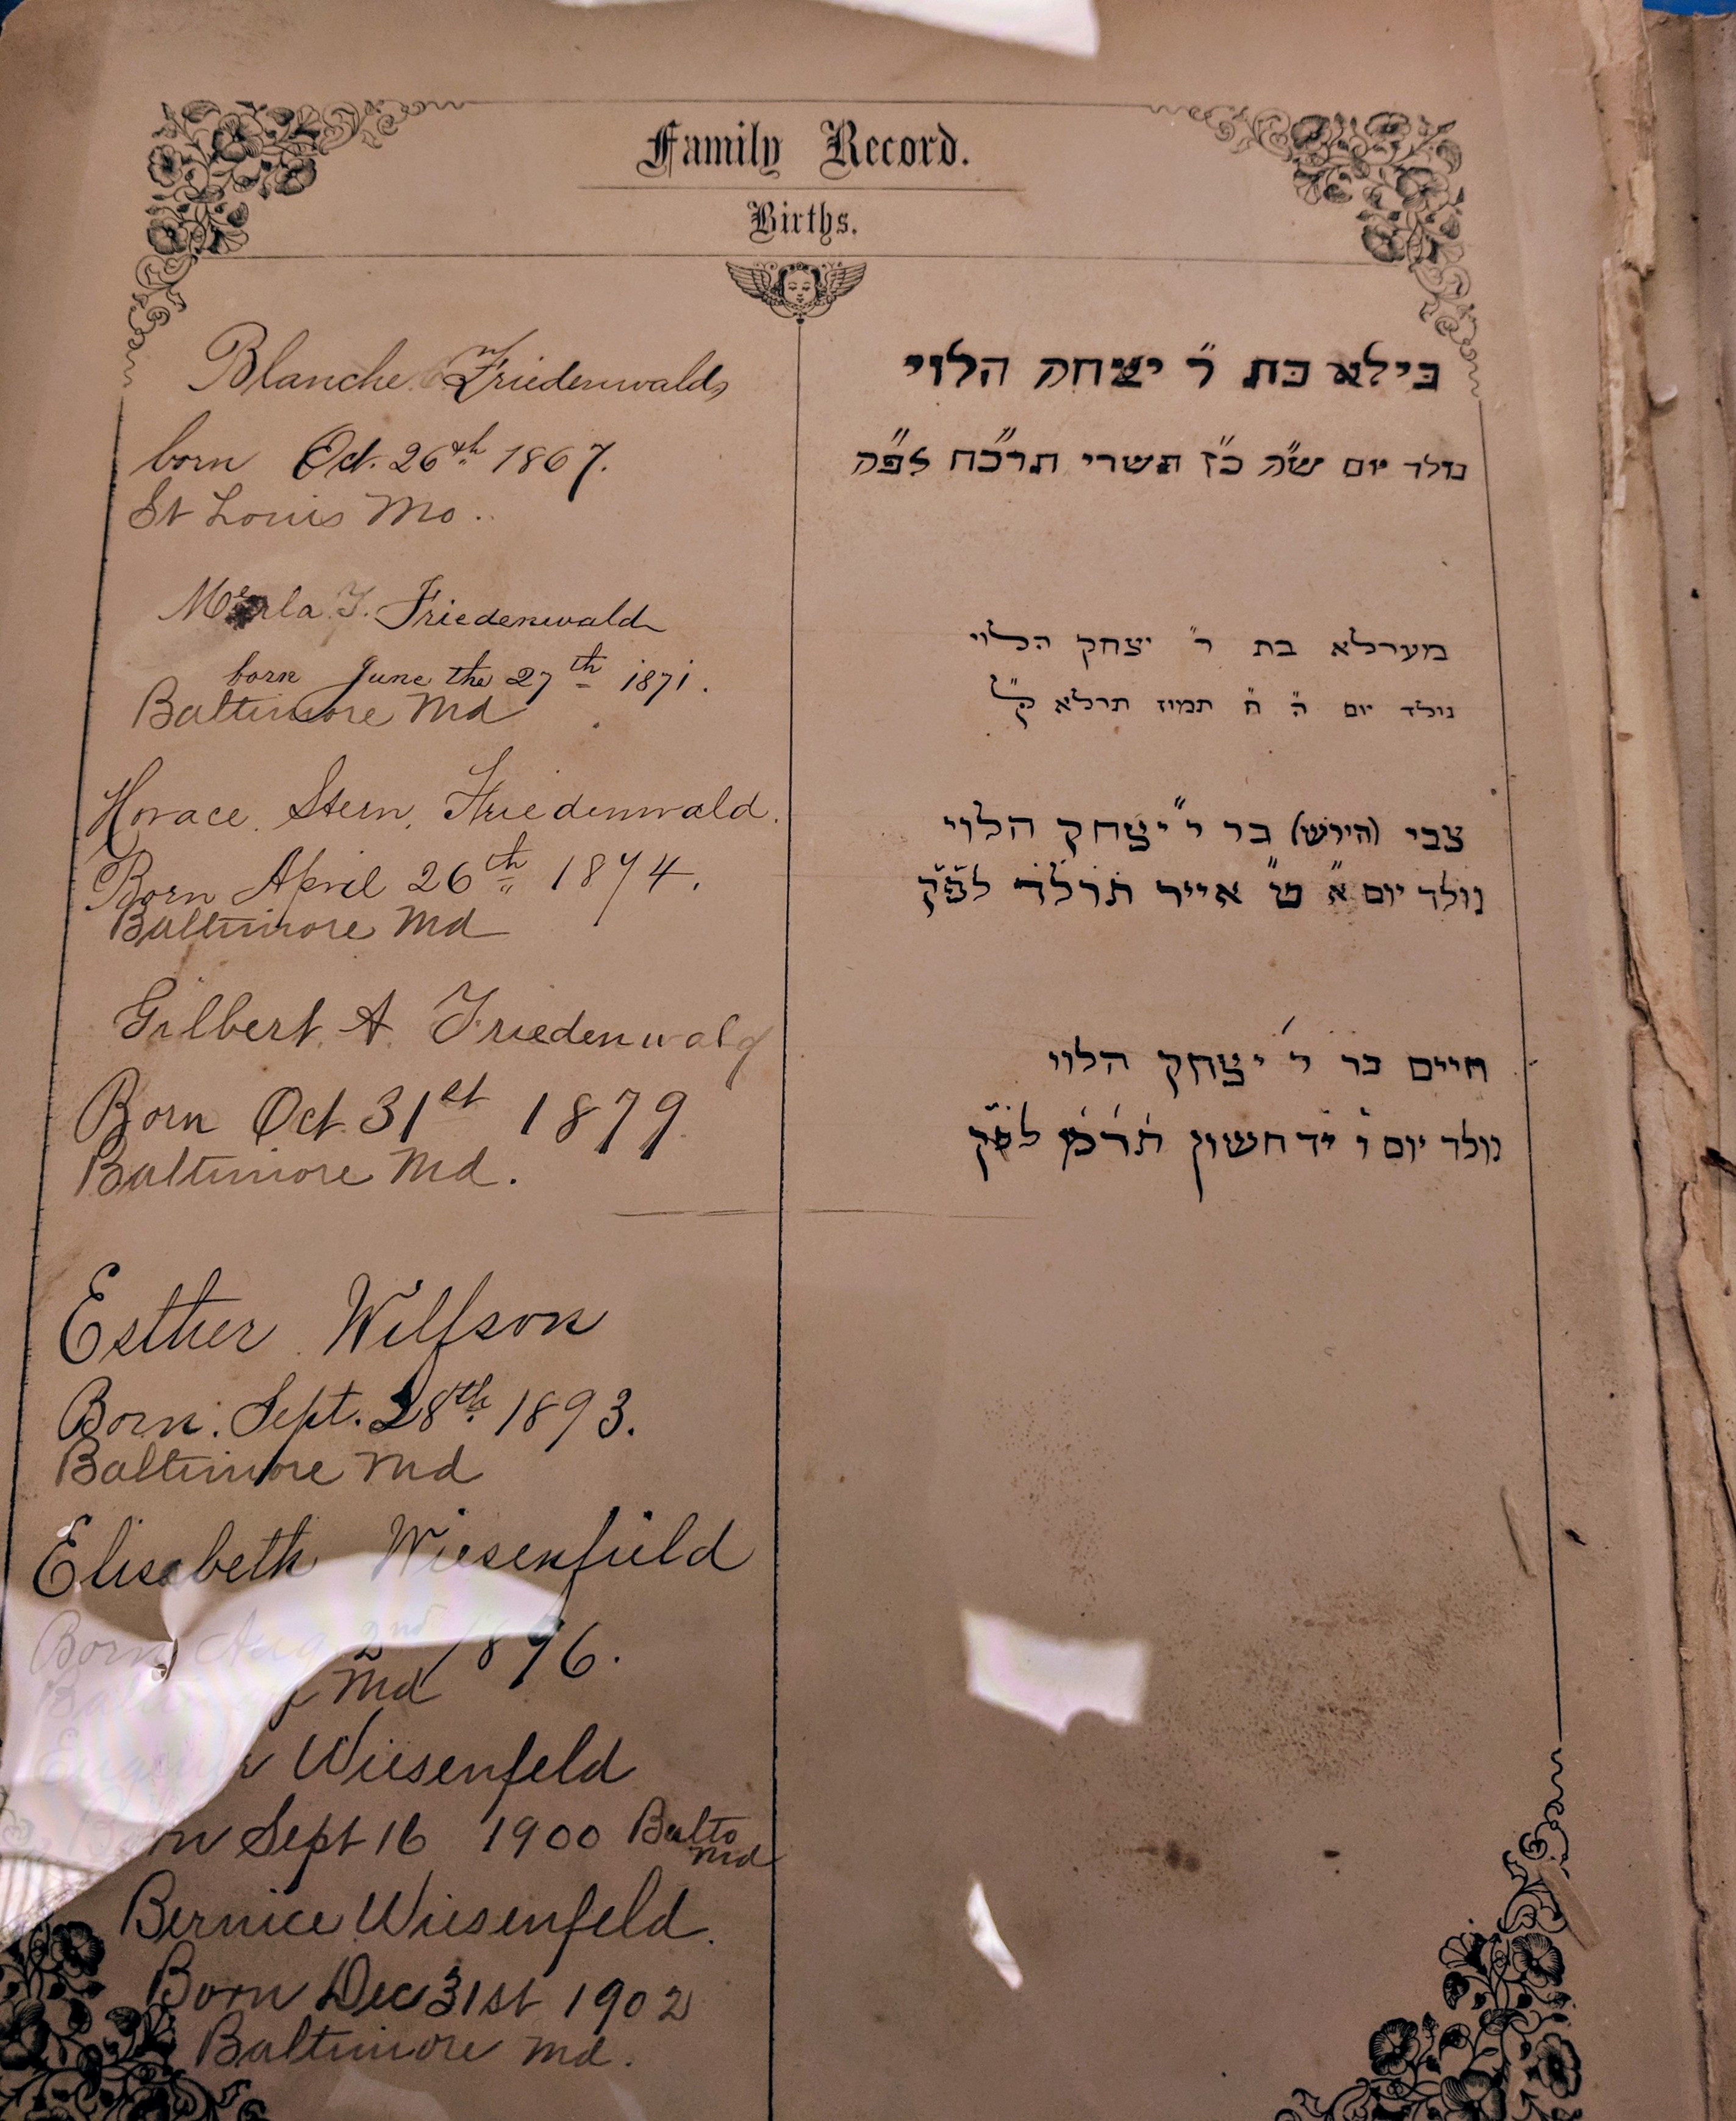 Family Record.
Births.
Blanche Friedenwald
born Oct. 26th 1867.
St Louis Mo.
Merla F. Friedenwald
born June the 27th 1871.
Baltimore Md
Horace Stern Friedenwald.
Born April 26th 1874.
Baltimore Md
Gilbert A Friedenwald
Born Oct 31st 1879
Baltimore Md.
Esther Wilfson
Born. Sept. 28th 1893.
Baltimore Md
Elisabeth Wiesenfield
Born Aug 2nd 1896.
Md
Wiesenfeld
Born Sept 16 1900 Balto
Md
Bernice Wiesenfeld.
Born Dec 31st 1902
Baltimore Md.
בילא בת ר״ יצחק הלוי
נולד יום ש״ק כ״ז תשרי תרכ״ח
מערלא בת ר״ יצחק הלוי
נולד יום ה״ ח״ תמוז תרלא
צבי (הירש) בר ר״ יצחק הלוי
נולד יום א״ ט״ אייר תרלד לפק
חיים בר ר׳ יצחק הלוי
נולד יום ו׳ יד חשון תרמ לפק